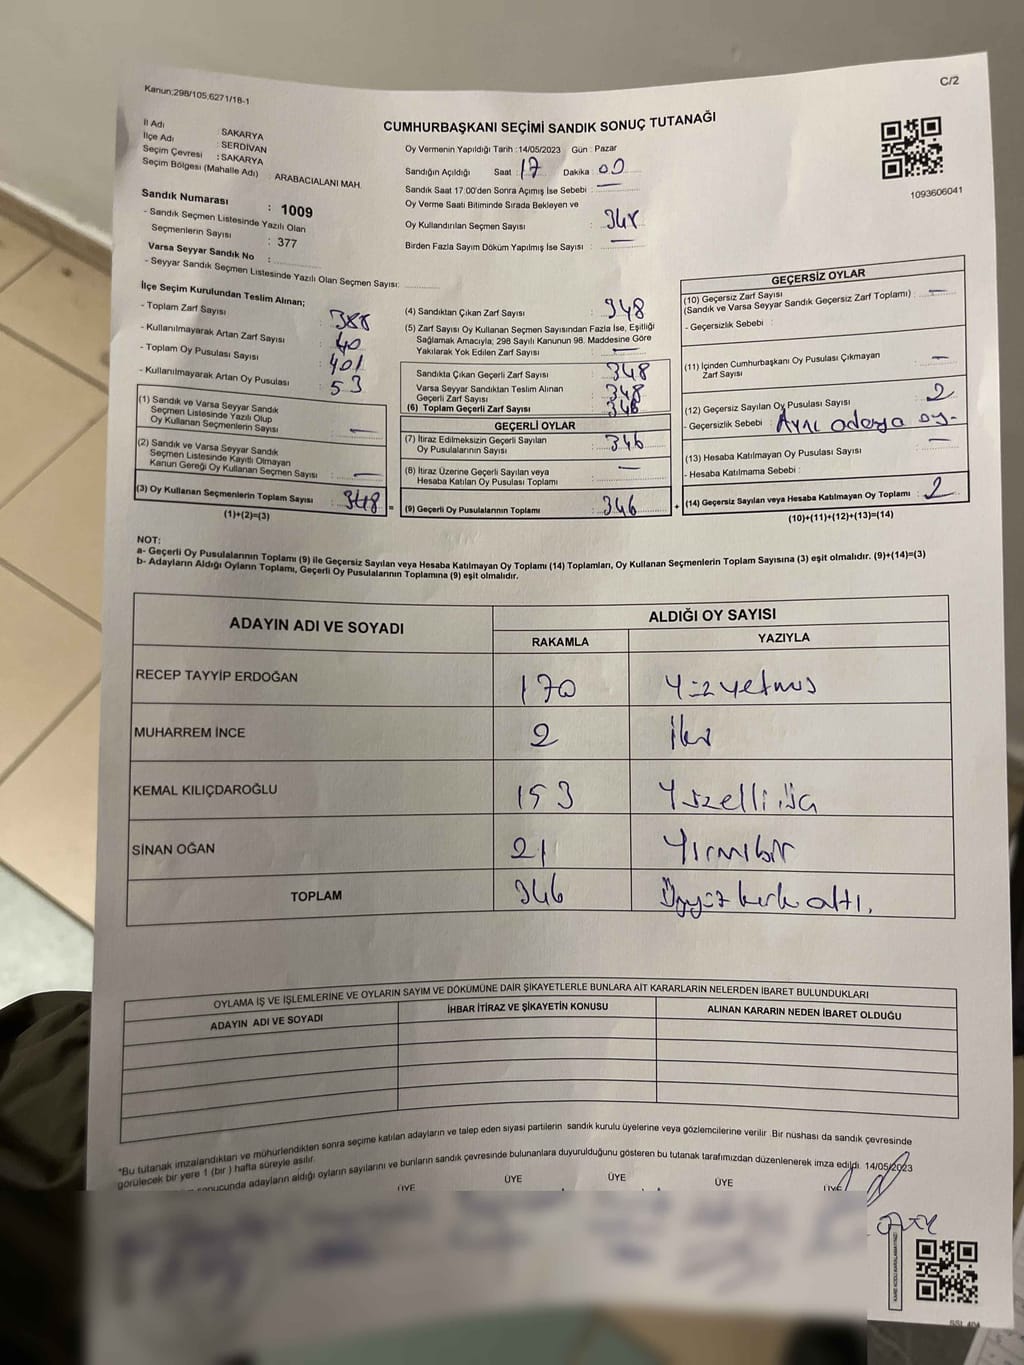 Kanun:298/105,6271/18-1
C/2
CUMHURBAŞKANI SEÇİMİ SANDIK SONUÇ TUTANAĞI
İl Adı : SAKARYA
İlçe Adı : SERDİVAN
Seçim Çevresi : SAKARYA
Seçim Bölgesi (Mahalle Adı) : ARABACIALANI MAH.
Sandık Numarası : 1009
- Sandık Seçmen Listesinde Yazılı Olan
Seçmenlerin Sayısı : 377
Varsa Seyyar Sandık No :
- Seyyar Sandık Seçmen Listesinde Yazılı Olan Seçmen Sayısı:
Oy Vermenin Yapıldığı Tarih : 14/05/2023 Gün : Pazar
Sandığın Açıldığı Saat : 17 Dakika : 00
Sandık Saat 17.00'den Sonra Açımış İse Sebebi : —
Oy Verme Saati Bitiminde Sırada Bekleyen ve
Oy Kullandırılan Seçmen Sayısı : 348
Birden Fazla Sayım Döküm Yapılmış İse Sayısı : —
1093606041
İlçe Seçim Kurulundan Teslim Alınan;
- Toplam Zarf Sayısı : 388
- Kullanılmayarak Artan Zarf Sayısı : 40
- Toplam Oy Pusulası Sayısı : 401
- Kullanılmayarak Artan Oy Pusulası : 53
(1) Sandık ve Varsa Seyyar Sandık
Seçmen Listesinde Yazılı Olup
Oy Kullanan Seçmenlerin Sayısı : —
(2) Sandık ve Varsa Seyyar Sandık
Seçmen Listesinde Kayıtlı Olmayan
Kanun Gereği Oy Kullanan Seçmen Sayısı : —
(3) Oy Kullanan Seçmenlerin Toplam Sayısı : 348
(1)+(2)=(3)
=
(4) Sandıktan Çıkan Zarf Sayısı : 348
(5) Zarf Sayısı Oy Kullanan Seçmen Sayısından Fazla İse, Eşitliği
Sağlamak Amacıyla, 298 Sayılı Kanunun 98. Maddesine Göre
Yakılarak Yok Edilen Zarf Sayısı : —
Sandıkta Çıkan Geçerli Zarf Sayısı : 348
Varsa Seyyar Sandıktan Teslim Alınan
Geçerli Zarf Sayısı : 348
(6) Toplam Geçerli Zarf Sayısı : 346
GEÇERLİ OYLAR
(7) İtiraz Edilmeksizin Geçerli Sayılan
Oy Pusulalarının Sayısı : 346
(8) İtiraz Üzerine Geçerli Sayılan veya
Hesaba Katılan Oy Pusulası Toplamı : —
(9) Geçerli Oy Pusulalarının Toplamı : 346
+
GEÇERSİZ OYLAR
(10) Geçersiz Zarf Sayısı
(Sandık ve Varsa Seyyar Sandık Geçersiz Zarf Toplamı) : —
- Geçersizlik Sebebi :
(11) İçinden Cumhurbaşkanı Oy Pusulası Çıkmayan
Zarf Sayısı : —
(12) Geçersiz Sayılan Oy Pusulası Sayısı : 2
- Geçersizlik Sebebi : Aynı adaya oy-
(13) Hesaba Katılmayan Oy Pusulası Sayısı : —
- Hesaba Katılmama Sebebi :
(14) Geçersiz Sayılan veya Hesaba Katılmayan Oy Toplamı : 2
(10)+(11)+(12)+(13)=(14)
NOT:
a- Geçerli Oy Pusulalarının Toplamı (9) ile Geçersiz Sayılan veya Hesaba Katılmayan Oy Toplamı (14) Toplamları, Oy Kullanan Seçmenlerin Toplam Sayısına (3) eşit olmalıdır. (9)+(14)=(3)
b- Adayların Aldığı Oyların Toplamı, Geçerli Oy Pusulalarının Toplamına (9) eşit olmalıdır.
ADAYIN ADI VE SOYADI ALDIĞI OY SAYISI
RAKAMLA YAZIYLA
RECEP TAYYİP ERDOĞAN 170 Yüzyetmiş
MUHARREM İNCE 2 iki
KEMAL KILIÇDAROĞLU 153 Yüzelliüç
SİNAN OĞAN 21 Yirmibir
TOPLAM 346 Üçyüz kırk altı.
OYLAMA İŞ VE İŞLEMLERİNE VE OYLARIN SAYIM VE DÖKÜMÜNE DAİR ŞİKAYETLERLE BUNLARA AİT KARARLARIN NELERDEN İBARET BULUNDUKLARI
ADAYIN ADI VE SOYADI İHBAR İTİRAZ VE ŞİKAYETİN KONUSU ALINAN KARARIN NEDEN İBARET OLDUĞU
*Bu tutanak imzalandıktan ve mühürlendikten sonra seçime katılan adayların ve talep eden siyasi partilerin sandık kurulu üyelerine veya gözlemcilerine verilir. Bir nüshası da sandık çevresinde
görülecek bir yere 1 (bir ) hafta süreyle asılır.
sonucunda adayların aldığı oyların sayılarını ve bunların sandık çevresinde bulunanlara duyurulduğunu gösteren bu tutanak tarafımızdan düzenlenerek imza edildi. 14/05/2023
ÜYE ÜYE ÜYE ÜYE ÜYE